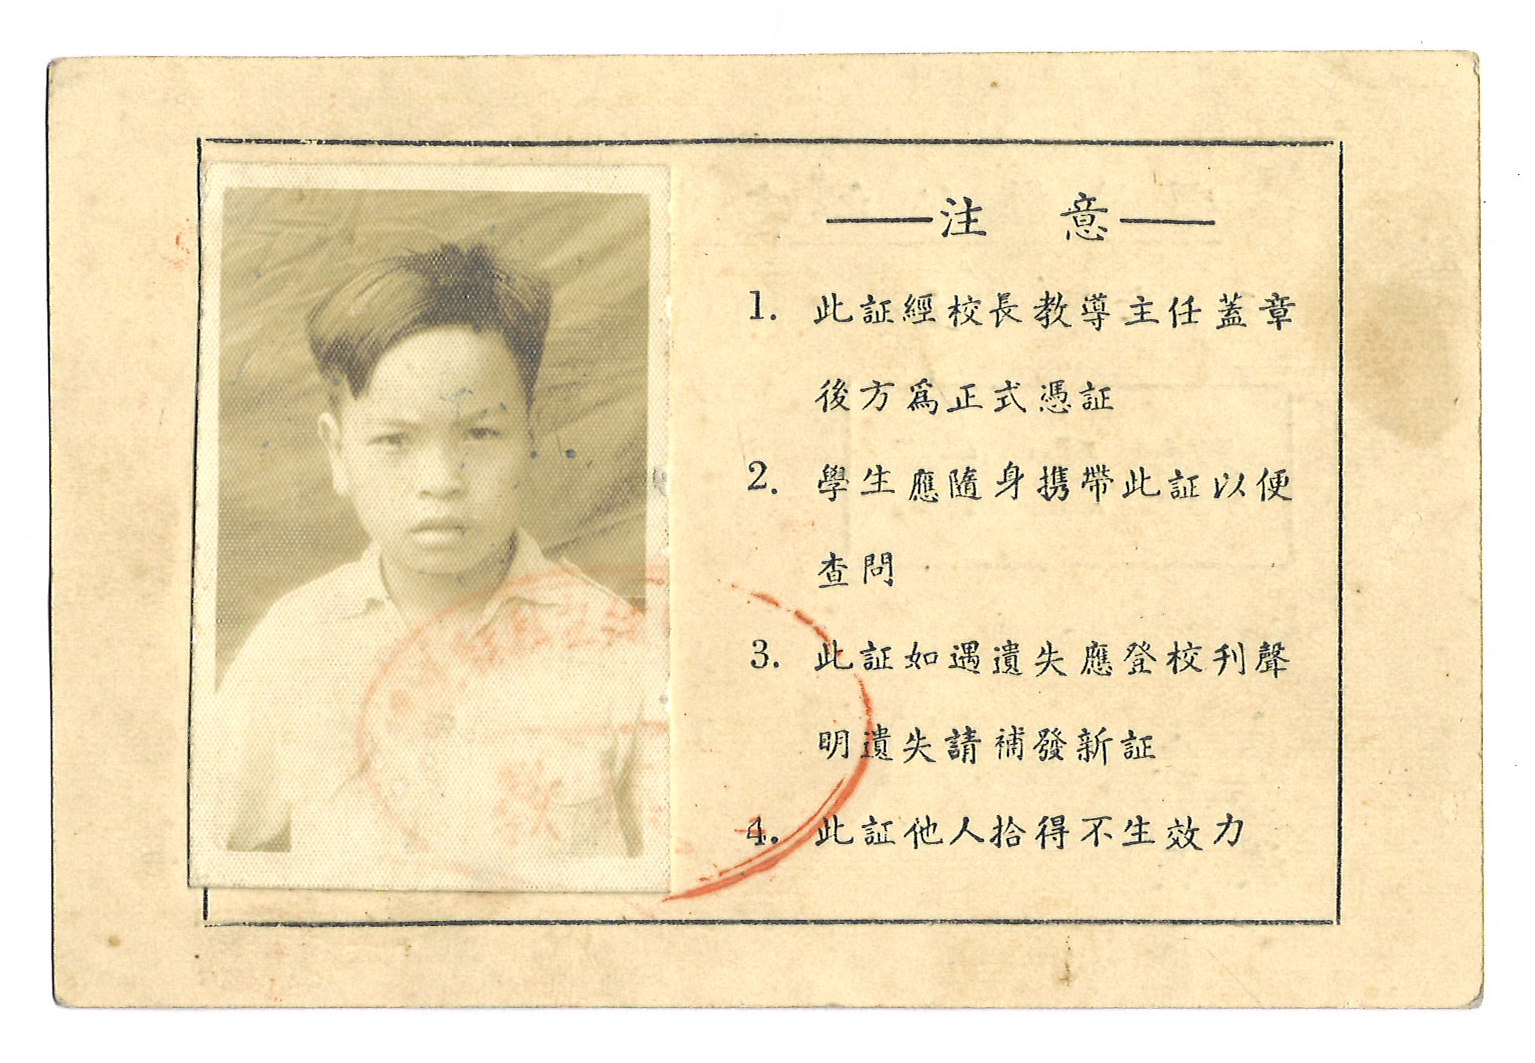 ——注 意——
1. 此証經校長教導主任蓋章
後方爲正式憑証
2. 學生應隨身携帶此証以便
查問
3. 此証如遇遺失應登校刋聲
明遺失請補發新証
4. 此証他人拾得不生效力